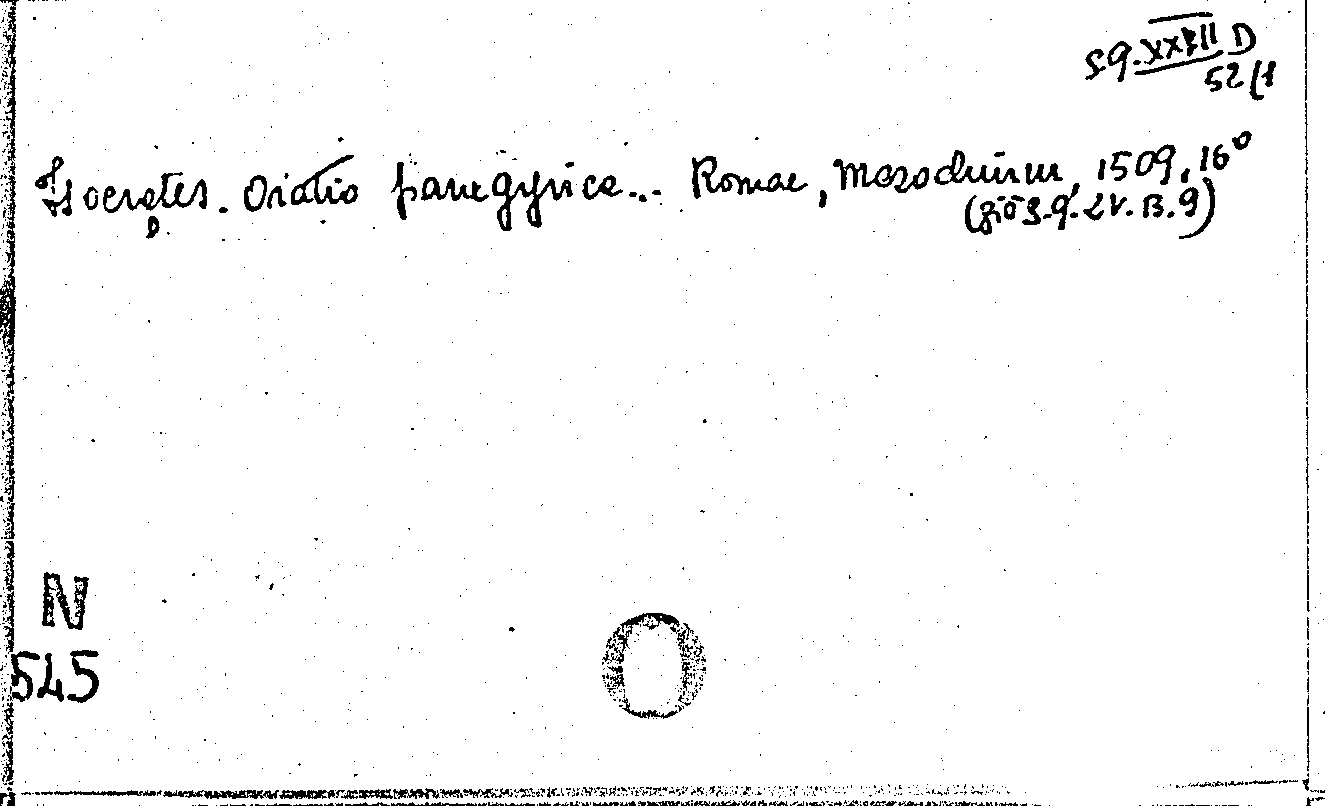 S.Q. XXXVII D
52/1
Isocrates. Oratio panegyrica... Romae, Mazochium, 1509, 16°
(già S.Q. LV. B. 9)
N
545